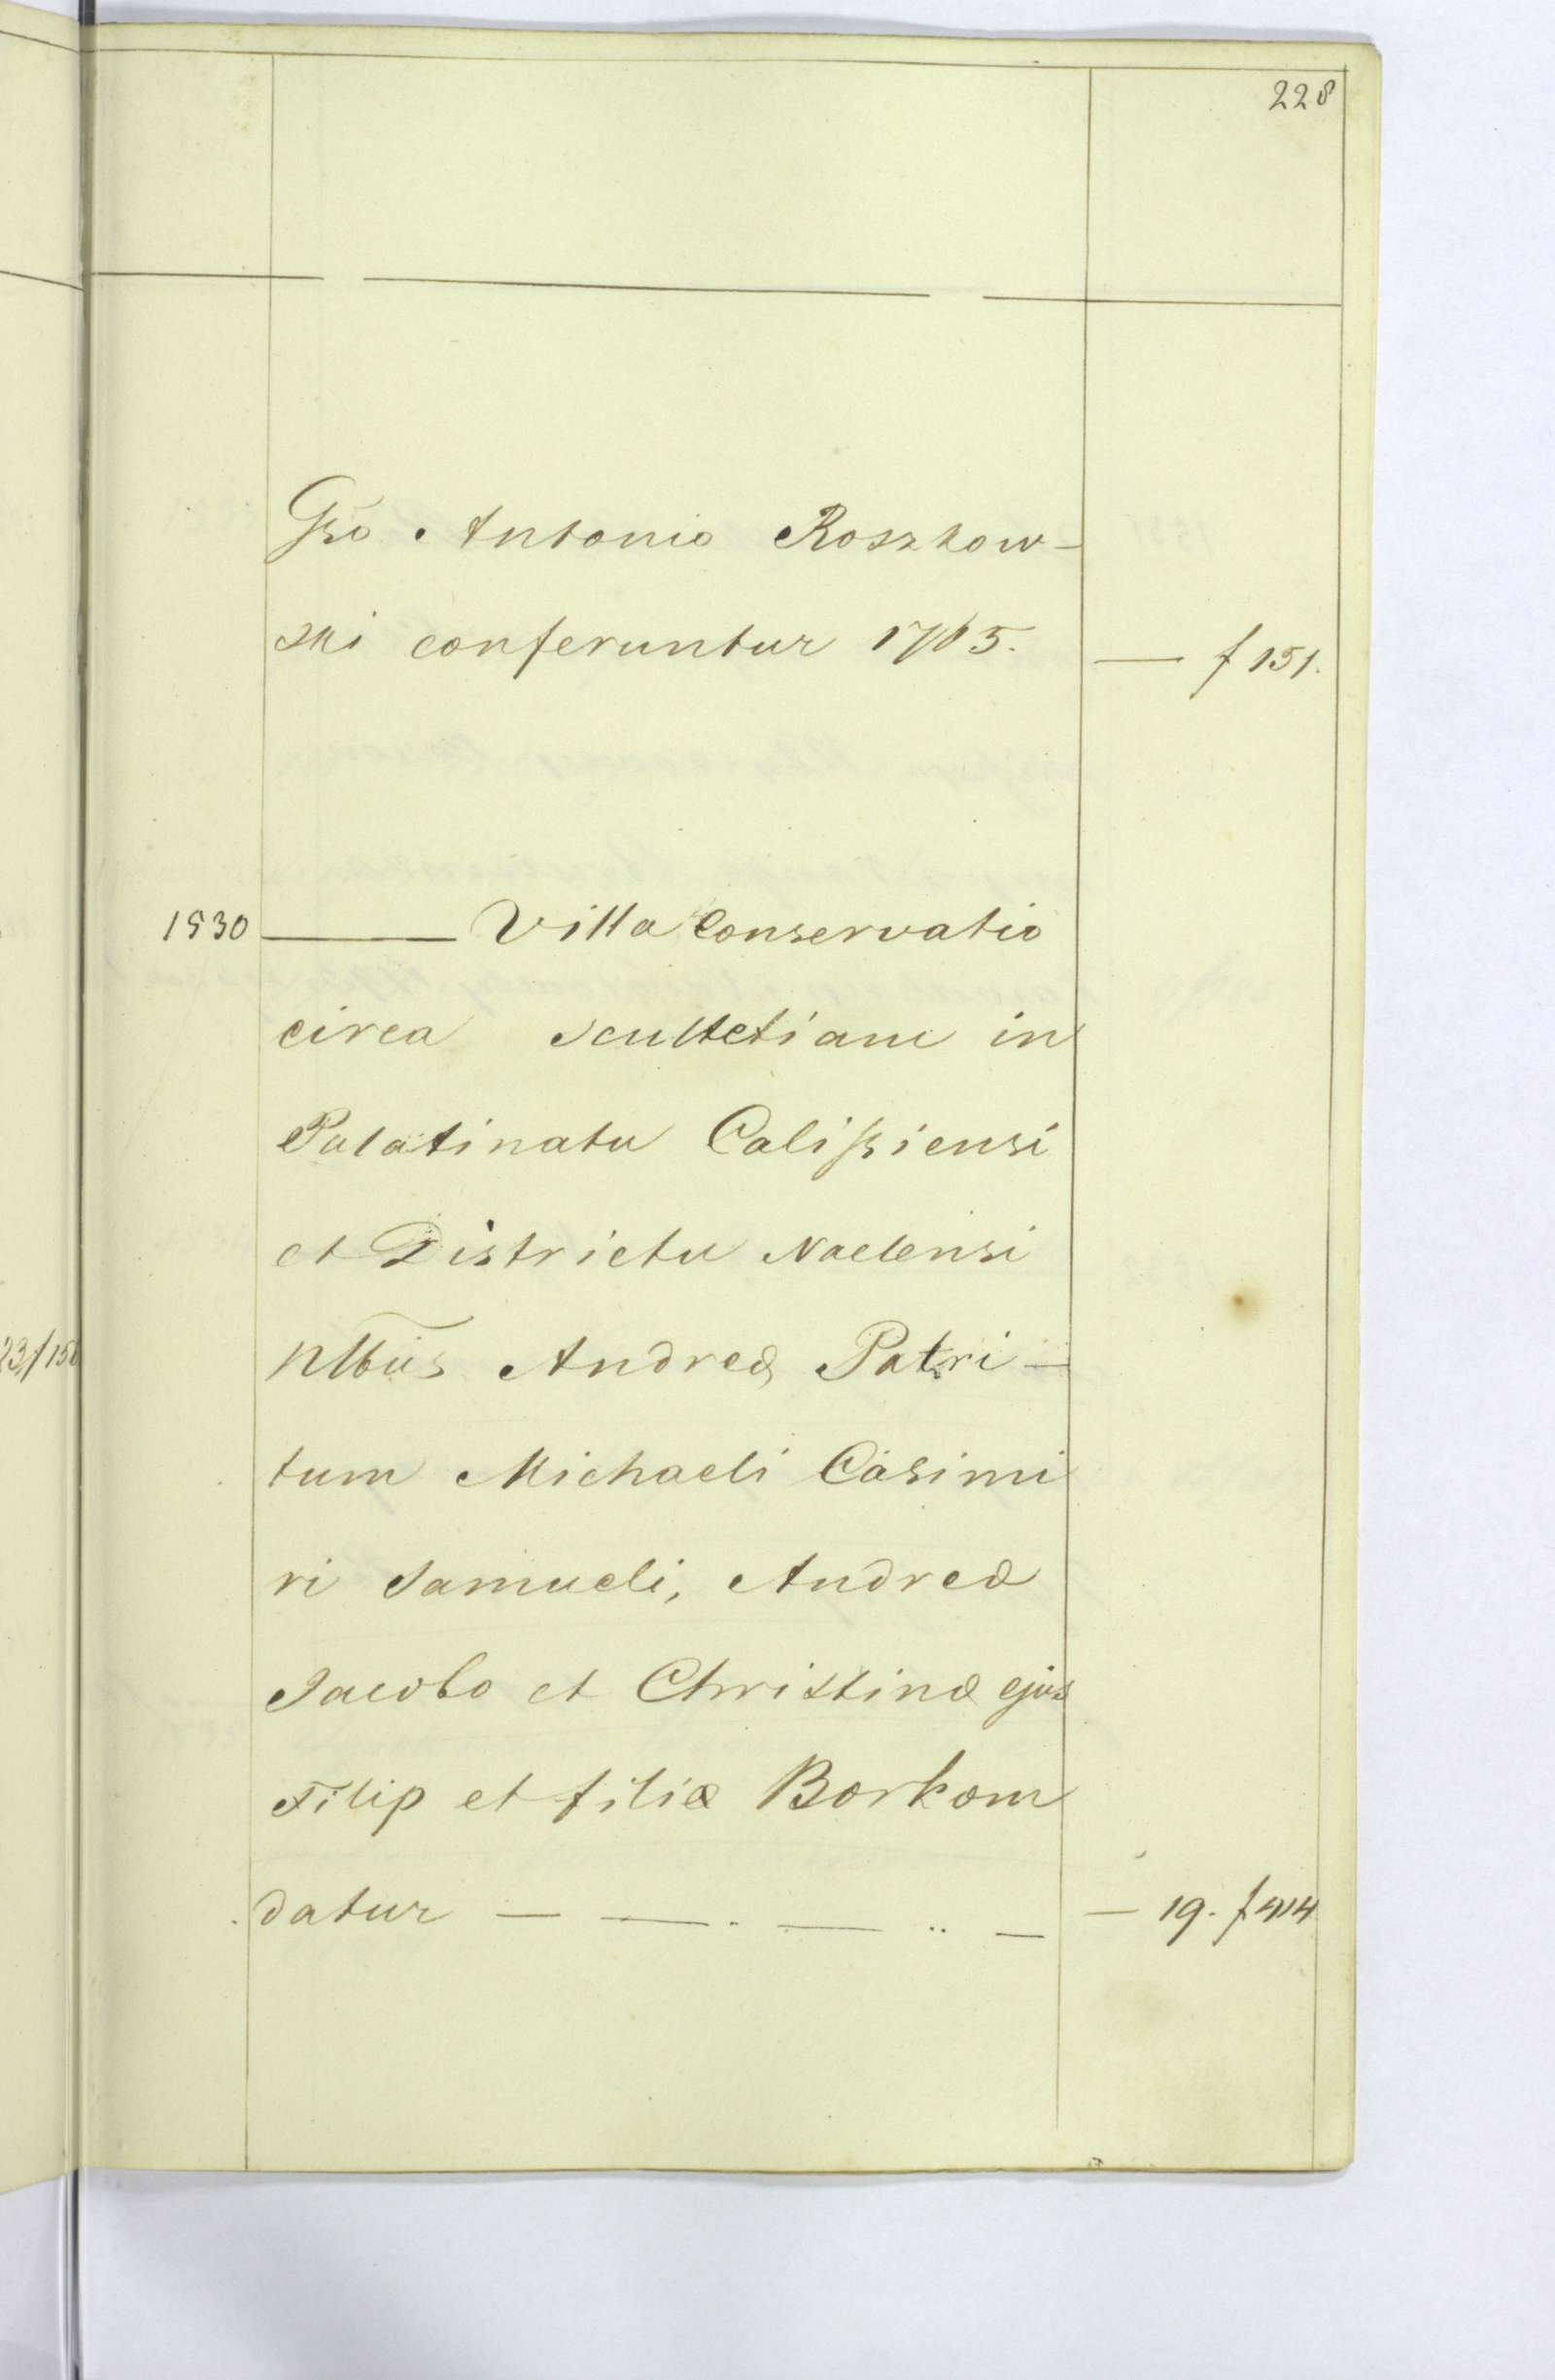 228
Gso Antonio Roszkow-
ski conferuntur 1765.
— f 151.
1530 — Villa Conservatio
circa scultetiam in
Palatinatu Calissiensi
et Districtu Naclensi
Nlbus Andreæ Patri-
tum Michaeli Casimi
ri Samueli, Andreæ
Jacobo et Christinæ ejus
Filip et filiæ Borkom
datur — — . — .. — — 19. f 414
23 f 150